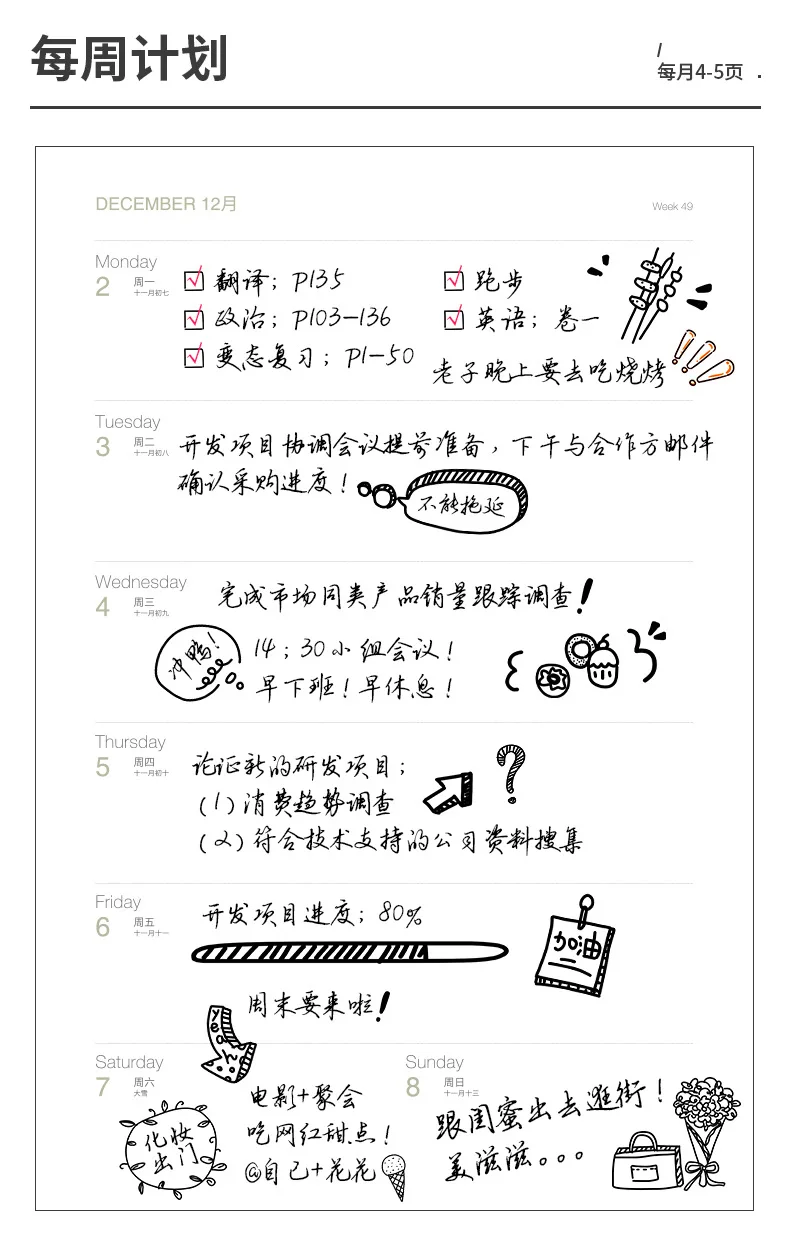 每周计划
/
每月4-5页 .
DECEMBER 12月
Week 49
Monday
2 周一
十一月初七
翻译；P135
跑步
政治；P103-136
英语；卷一
变态复习；P1-50
老子晚上要去吃烧烤
Tuesday
3 周二
十一月初八
开发项目协调会议提前准备，下午与合作方邮件
确认采购进度！
不能拖延
Wednesday
4 周三
十一月初九
完成市场同类产品销量跟踪调查！
冲鸭！
14；30小组会议！
早下班！早休息！
Thursday
5 周四
十一月初十
论证新的研发项目；
(1)消费趋势调查
(2)符合技术支持的公司资料搜集
?
Friday
6 周五
十一月十一
开发项目进度；80%
加油
周末要来啦！
yeah
Saturday
7 周六
大雪
化妆
出门
电影+聚会
吃网红甜点！
@自己+花花
Sunday
8 周日
十一月十三
跟闺蜜出去逛街！
美滋滋。。。